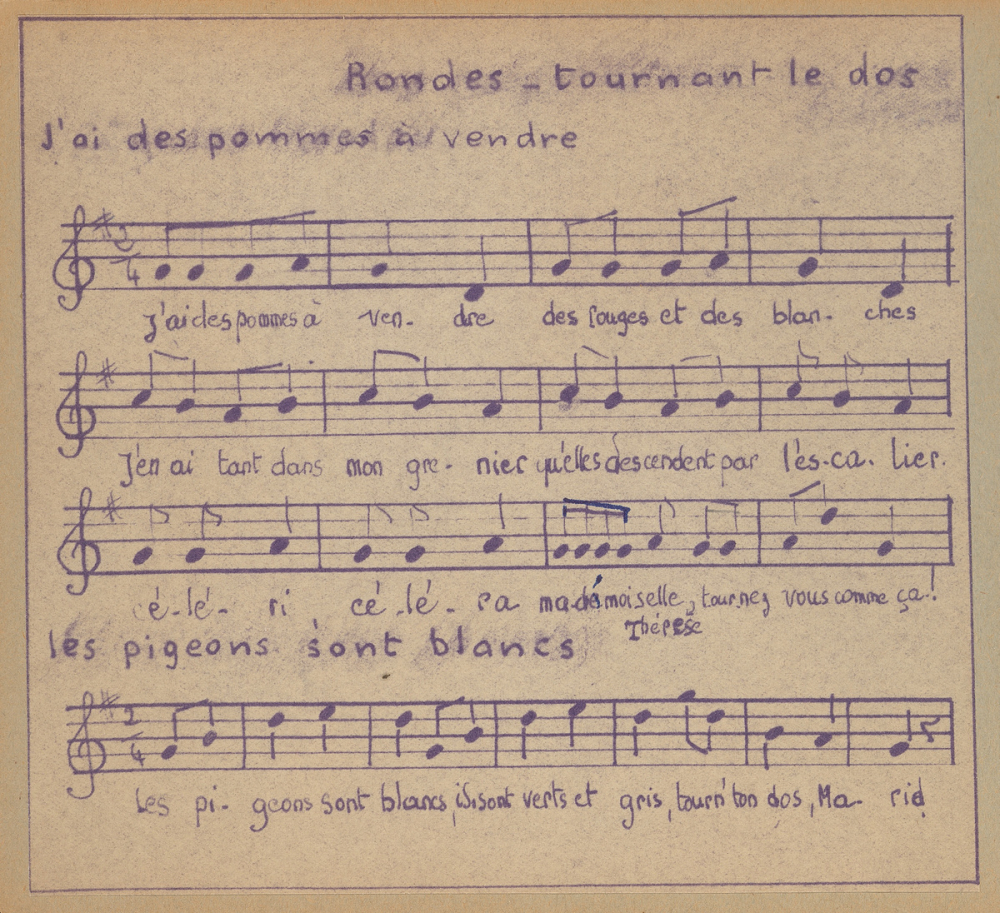 Rondes - tournant le dos
J'ai des pommes à vendre
2
4
J'ai des pommes à ven- dre des rouges et des blan- ches
J'en ai tant dans mon gre- nier qu'elles descendent par l'es-ca- lier.
é-lé- ri cé-lé- ra ma-demoiselle, tournez vous comme ça!
Thérèse
les pigeons sont blancs
2
4
Les pi- geons sont blancs, ils sont verts et gris, tourn' ton dos, Ma- rid